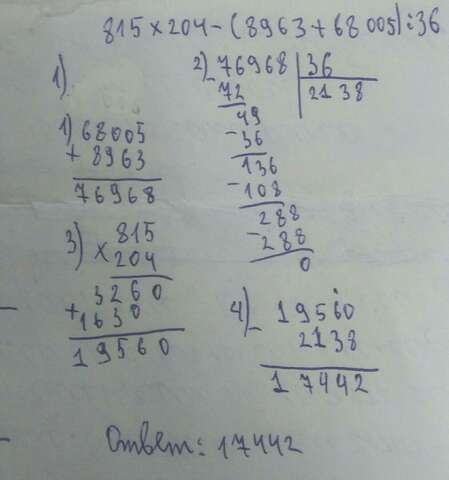 815×204-(8963+68005):36
1)
1) 68005
+ 8963
76968
2) 76968 | 36
- 72 | 2138
49
- 36
136
- 108
288
- 288
0
3) 815
× 204
3260
+ 1630
19560
4) 19560
- 2138
17442
Ответ: 17442